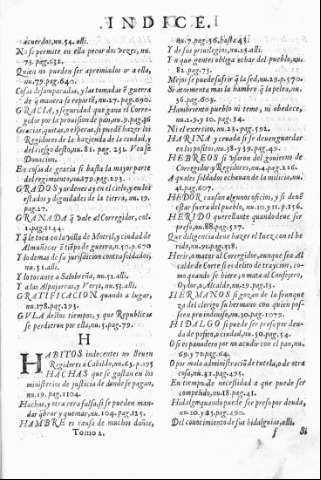 INDICE.
acuerdos, nu. 54. alli.
No se permite en ella pecar dos vezes, nu.
73. pag. 632.
Quien no pueden ser apremiados a ella,
nu. 79. pag. 640.
Casas desamparadas, y las tomadas
de guerra se reparte, nu. 27. pag. 690.
GRACIA, y seguridad que gana el Corre-
gidor por la provision de pan, nu. 9. pag. 46
Gracias, quitas, o esperas, si puede hazer los
Regidores de la hazienda de la ciudad, y
del riesgo desto, nu. 81. pag. 251. Vease
Donacion.
En cosas de gracia si basta la mayor parte
del regimiento, nu. 173. pag. 231.
GRADOS y ordenes ay en el cielo, y en los
estados y dignidades de la tierra, nu. 19.
pag. 27.
GRANADA q vale al Corregidor, col.
1. pag. 1144.
Y q le toca en la villa de Motril, y ciudad de
Almuñecar
Y lo demas de su jurisdicion contra soldados,
nu. 51. alli.
Y lo tocante a Salobreña, nu. 51. alli.
Y a las Alpujarras, y Verja, nu. 52. alli.
GRATIFICACION quando a lugar,
nu. 178. pag. 295.
GULA destos tiempos, y que Republicas
se perdieron por ella, nu. 5. pag. 79.
H
HABITOS indecentes no lleven
Regidores a Cabildo, nu. 63. p. 175
HACHAS que se gastan en los
ministerios de justicia de donde se pagan,
nu. 19. pag. 1104.
Hachas, y otra cera falsa, si se pueden man-
dar qbrar y quemar, nu. 104. pag. 125.
HAMBRE es causa de muchos daños,
Tomo 2.
nu. 7. pag. 36. hasta 43.
Y de sus privilegios, nu. 25. alli.
Y a que gentes obliga echar del pueblo, nu.
82. pag. 73.
Mejor se puede sufrir q la sed, nu. 29. p. 570.
Si atormenta mas la hambre q la peste, nu.
36. pag. 603.
Hambriento pueblo ni teme, ni obedece,
nu. 2. 9. y 10. pag. 34.
Ni el exercito, nu. 23. pag. 592.
HARINA y cevada si se deven guardar
en los positos, nu. 38. y 39. pag. 49.
HEBREOS si usaron del govierno de
Corregidor y Regidores, nu. 4. pag. 216.
A quales soldados echavan de la milicia, nu.
41. pag. 607.
HEDOR causan algunos oficios, y si deven
estar fuera del pueblo, nu. 10. y 11. p. 156.
HERIDO querellante quando deve ser
preso, nu. 88. pag. 517.
Que diligencia deve hazer el Juez con el he-
rido, nu. 91. pag. 518.
Herir, o matar al Corregidor, aunque sea Al-
calde de Corte si es delito de traycion, co-
mo quando se hiere, o mata al Consejero,
Oydor, o Alcalde, nu. 29. pag. 13.
HERMANOS si gozan de la franque-
za del clerigo su hermano con quien pos-
seen pro indiviso, nu. 30. pag. 1079.
HIDALGO si puede ser preso por deu-
da de posito, o ciudad, nu. 50. pag. 54.
O si es panadero por no acudir con el pan, nu.
69. y 72. pag. 64.
O por mala administracio de tutela, o de otra
cosa, nu. 31. pag. 475.
En tiempo de necesidad a que puede ser
compelido, nu. 18. pag. 41.
Hidalgo quando puede ser preso por deuda,
nu. 20. y 25. pag. 490.
Del conocimiento de sus hidalguias, alli.
f Si